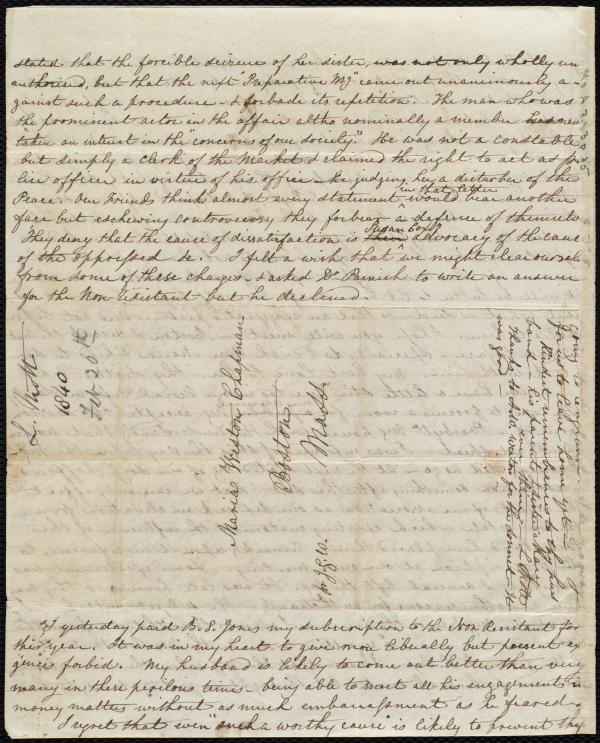 stated that the forcible seizure of her sister, was not only wholly un
authorised, but that the next "Preparative Mg" came out unanimously a-
gainst such a procedure - & forbade its repetition. The man who was
the prominent actor in the affair altho nominally a member has never
taken an interest in the "concerns of our society." He was not a constable
but simply a Clerk of the Market & claimed the right to act as po
lice officer in virtue of his office - he judging her a disturber of the
Peace. Our Friends think almost every statement in that letter would bear another
face but eschewing controversy they forbear a defence of themselves
They deny that the cause of dissatisfaction is Susan Cox's advocacy of the cause
of the oppressed &c. I felt a wish that we might clear ourselves
from some of these charges - & asked Dr. Parrish to write an answer
for the Non-Resistant but he declined.
L. Mott
1840
Feb 20th
Maria Weston Chapman
Boston
Mass.
pr J. G. W.
for us to leave home yet -
Kindest remembrances to thy hus
band - his parents, sister Mary
L. Mott
Thanks to Anne Weston for the sonnet - It
was good -
I yesterday paid B. S. Jones my subscription to the Non Resistant for
this year. It was in my heart to give more liberally but present ex
gencies forbid. My husband is likely to come out better than very
many in these perilous times - being able to meet all his engagements in
money matters without as much embarrassment as he feared.
I regret that even "such a worthy cause" is likely to prevent thy